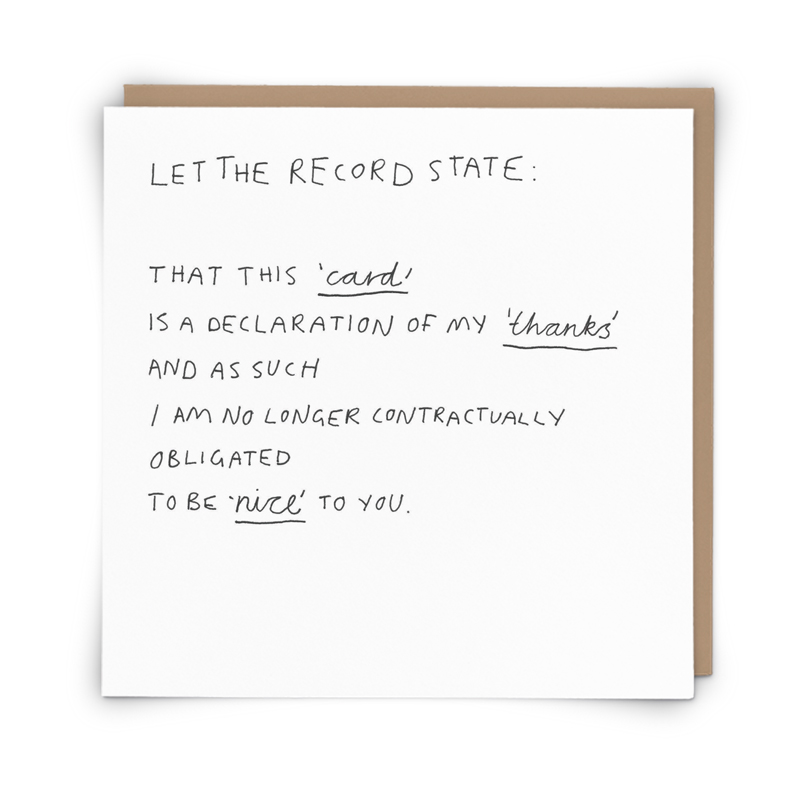 LET THE RECORD STATE:
THAT THIS 'card'
IS A DECLARATION OF MY 'thanks'
AND AS SUCH
I AM NO LONGER CONTRACTUALLY
OBLIGATED
TO BE 'nice' TO YOU.